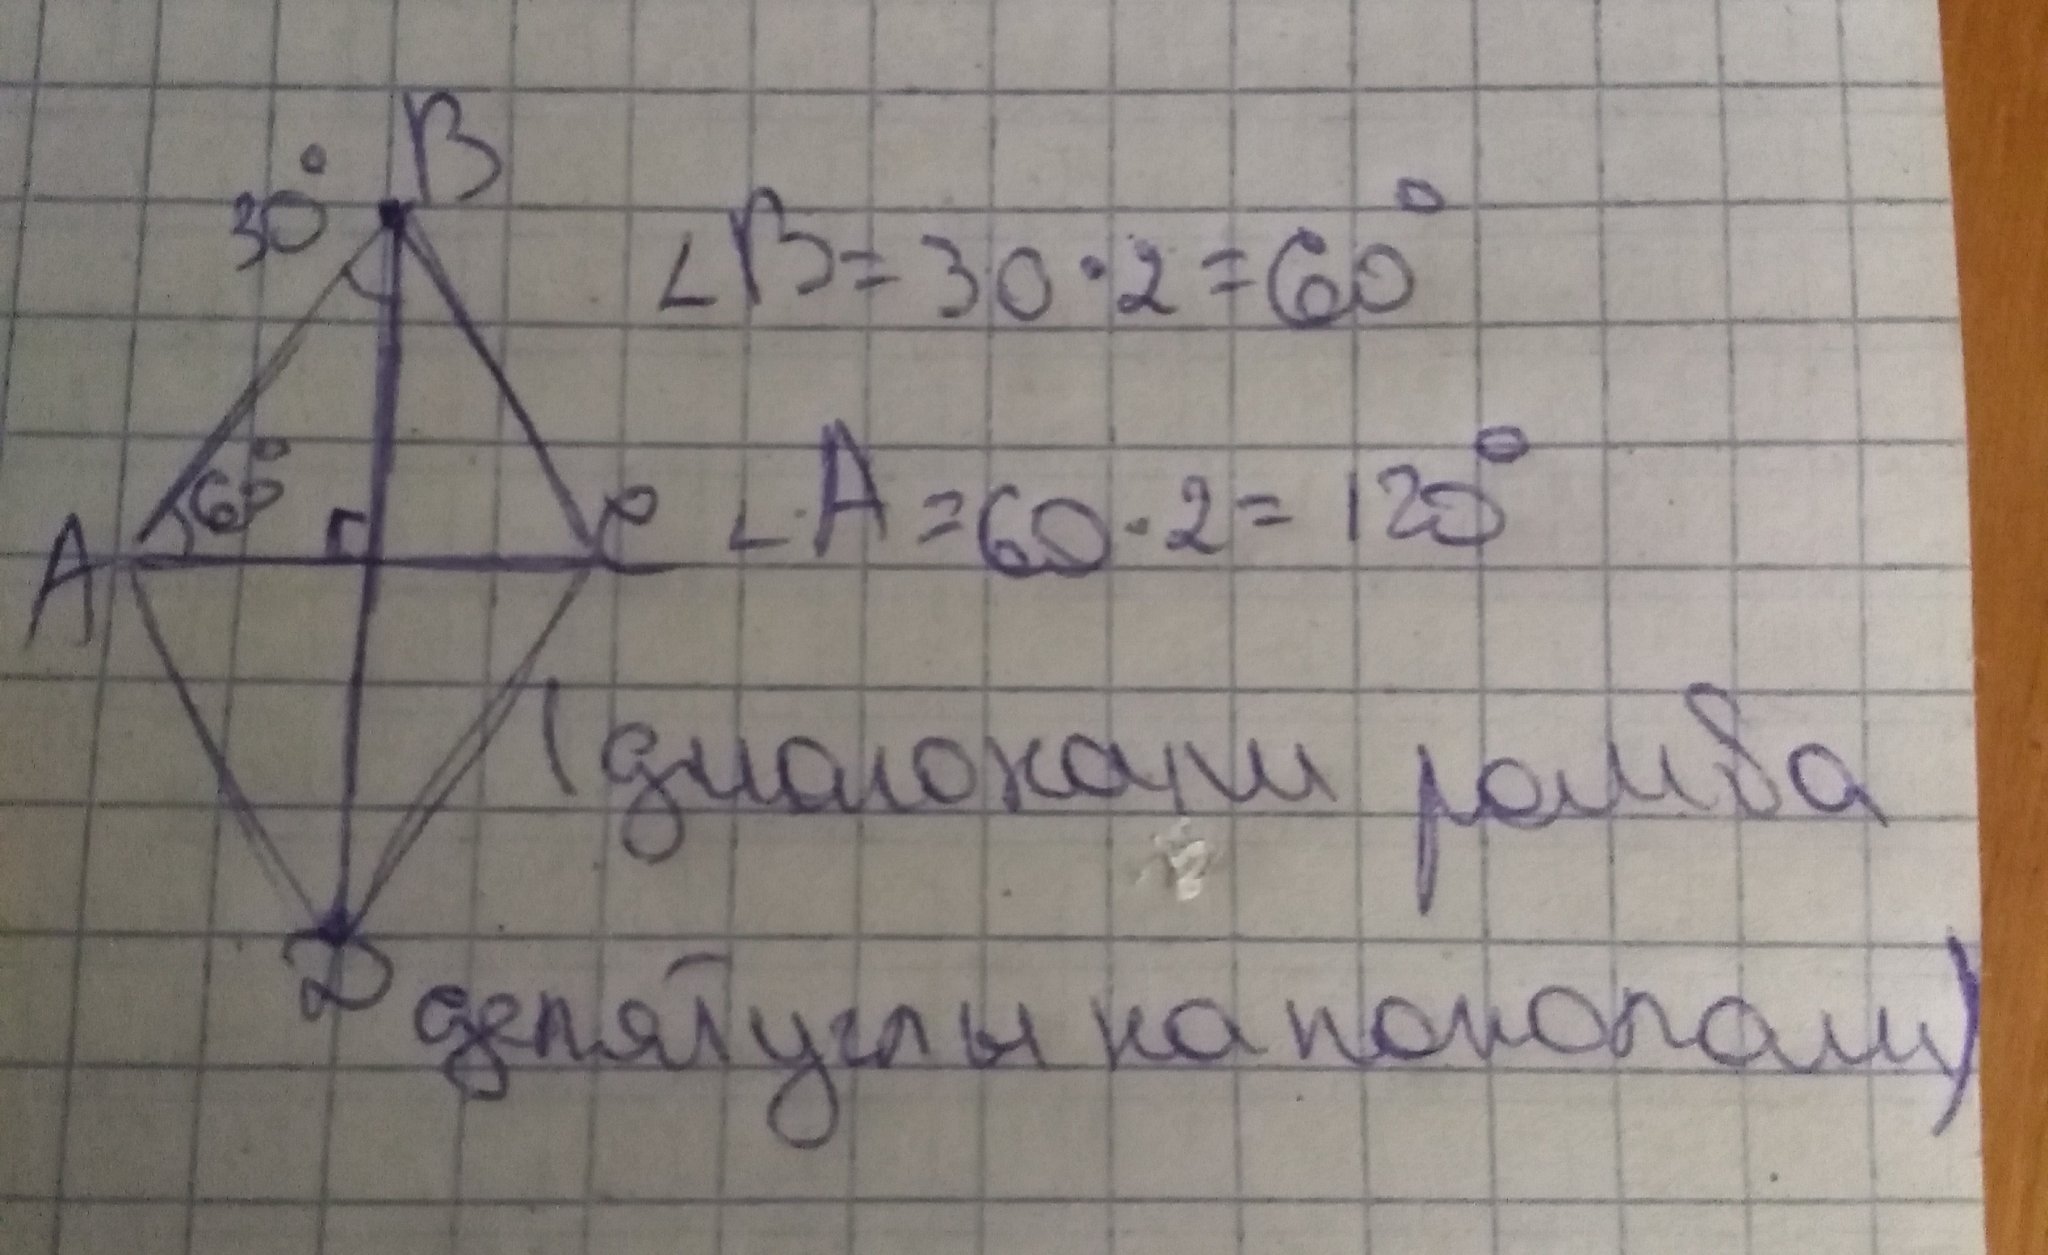 B
30°
∠B = 30 · 2 = 60°
60°
A
C
∠A = 60 · 2 = 120°
(диагонали ромба
D
делят углы на пополам)